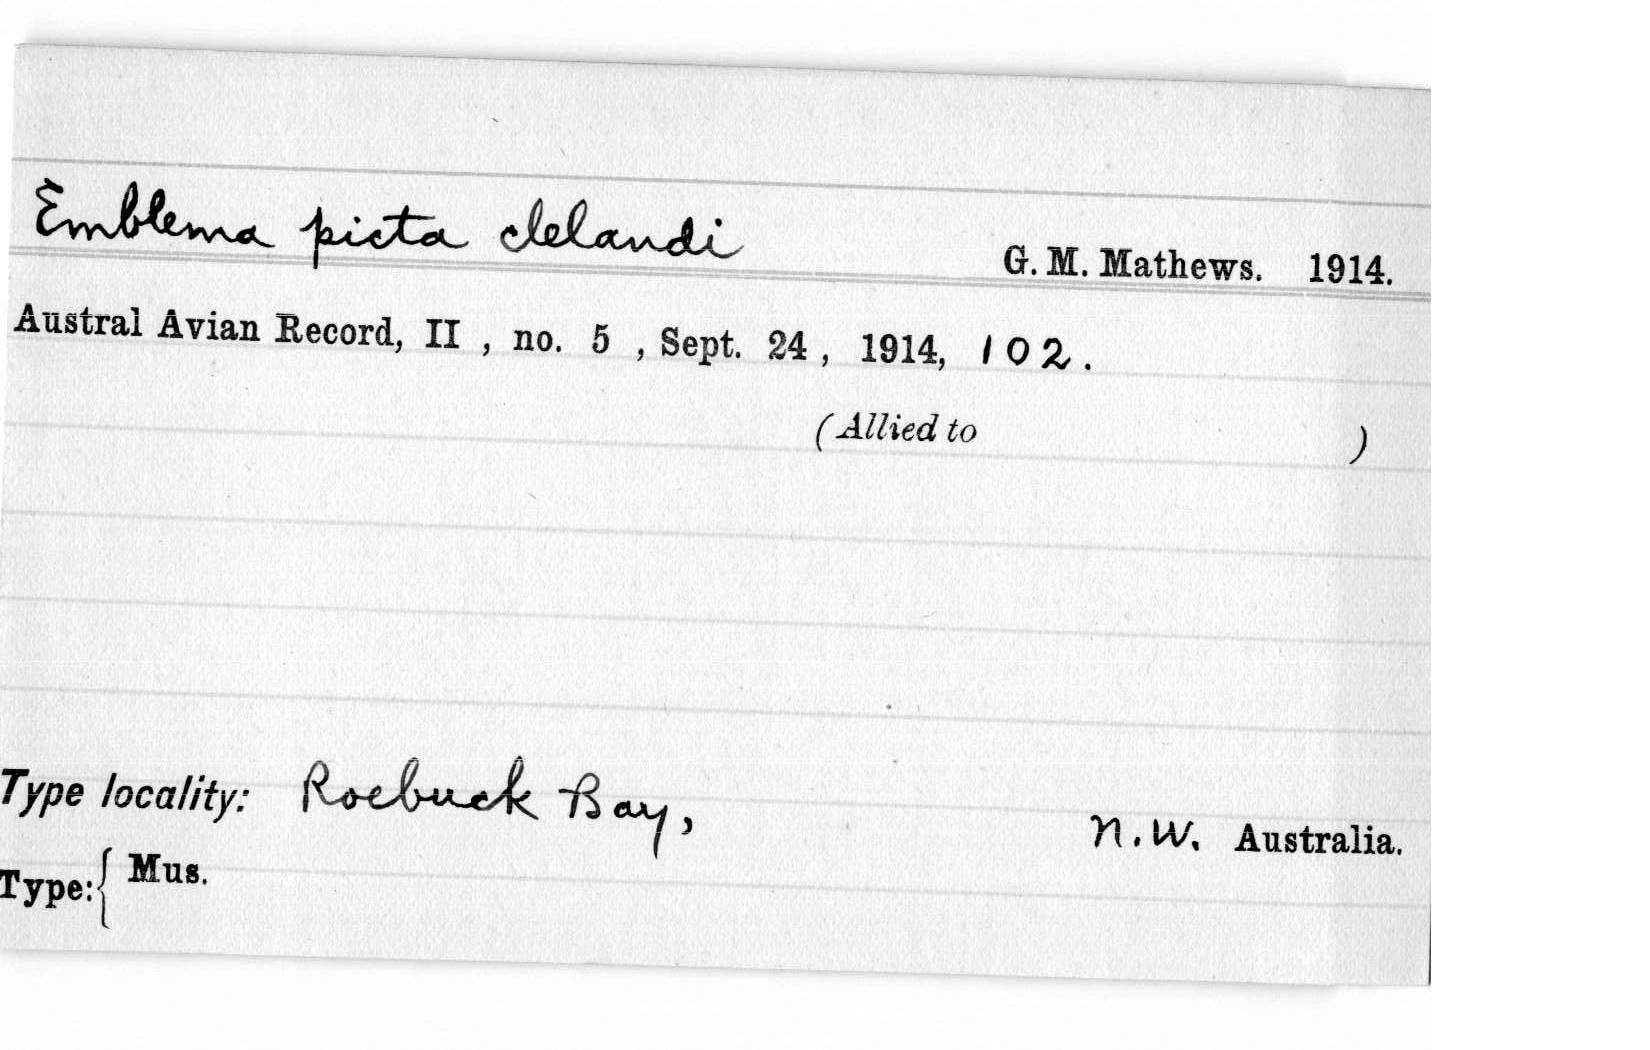 Emblema picta clelandi G. M. Mathews. 1914.
Austral Avian Record, II , no. 5 , Sept. 24 , 1914, 102.
(Allied to )
Type locality: Roebuck Bay, N.W. Australia.
Type:{ Mus.